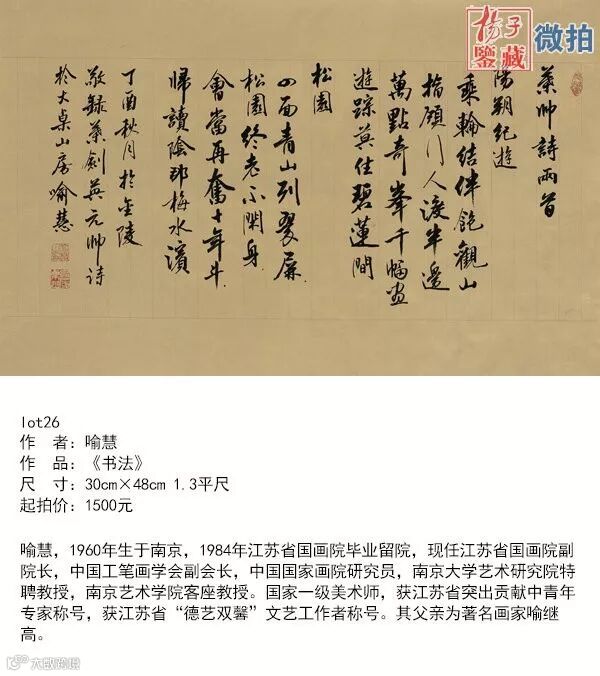 揚子
鑒藏 微拍
葉帥詩兩首
陽朔紀遊
乘輪結伴飽觀山
指顧行人渡半邊
萬點奇峯千幅畫
遊踪莫住碧蓮間
松園
四面青山列翠屏
松園終老不閑身
會當再奮十年斗
歸讀陰那梅水濱
丁酉秋月於金陵
敬録葉劍英元帥詩
於大桌山房喻慧
lot26
作 者：喻慧
作 品：《书法》
尺 寸：30cm×48cm 1.3平尺
起拍价：1500元
喻慧，1960年生于南京，1984年江苏省国画院毕业留院，现任江苏省国画院副
院长，中国工笔画学会副会长，中国国家画院研究员，南京大学艺术研究院特
聘教授，南京艺术学院客座教授。国家一级美术师，获江苏省突出贡献中青年
专家称号，获江苏省“德艺双馨”文艺工作者称号。其父亲为著名画家喻继
高。